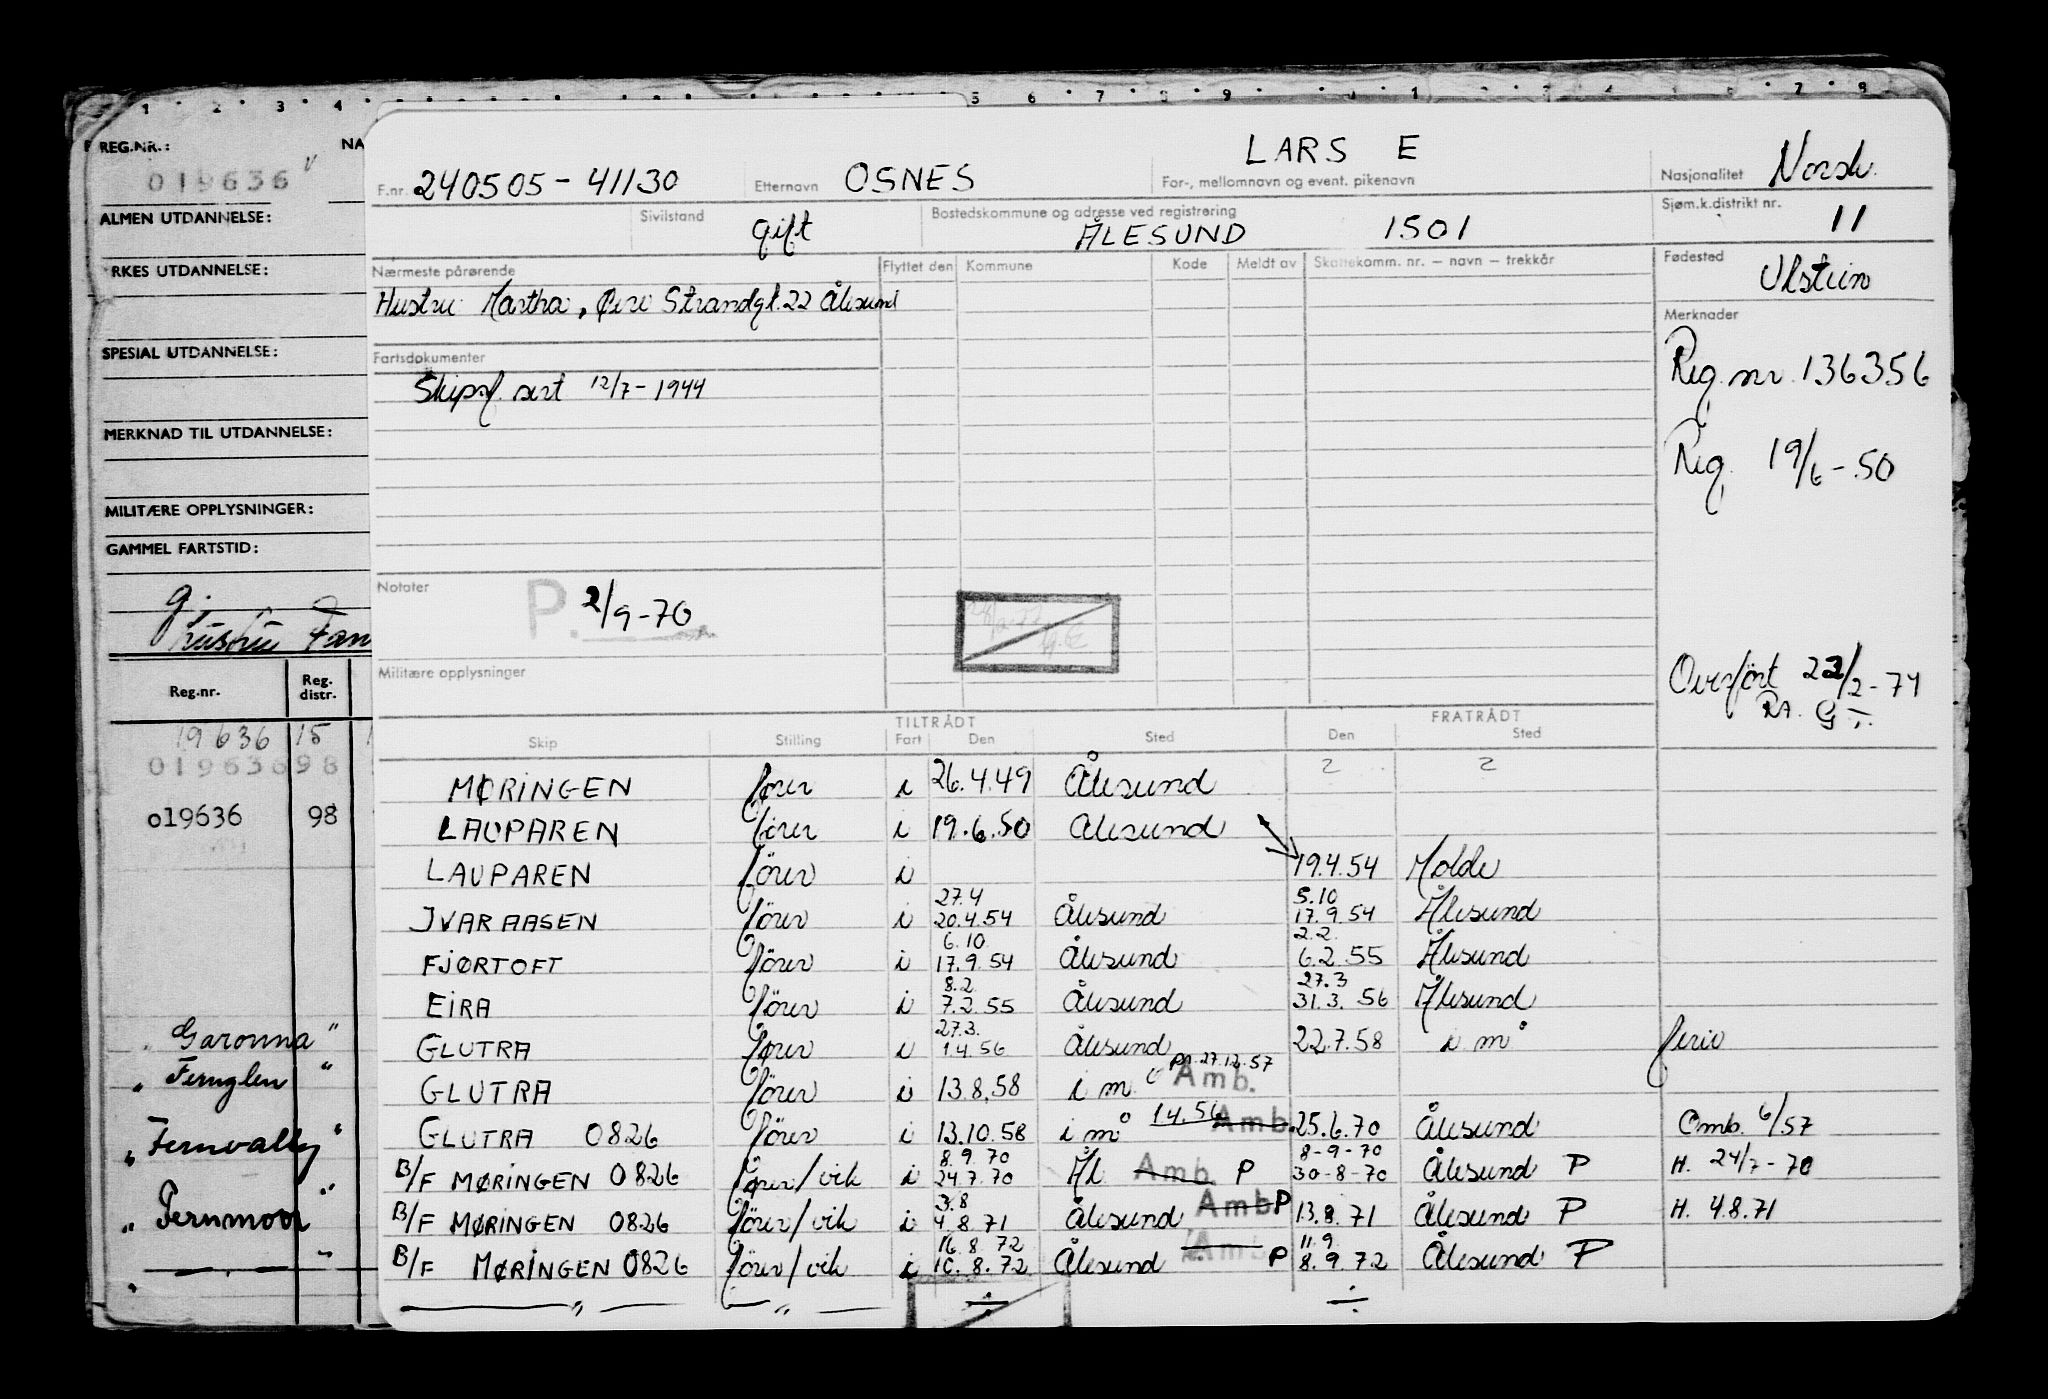 REG.NR.:
019636
ALMEN UTDANNELSE:
RKES UTDANNELSE:
SPESIAL UTDANNELSE:
MERKNAD TIL UTDANNELSE:
MILITÆRE OPPLYSNINGER:
GAMMEL FARTSTID:
g.
Hustru Fan
Reg.nr. Reg. distr.
19636 15
019636 98
019636 98
" Garonna "
" Fernglen "
" Fernvally "
" Fernmoor "
LARS E
F.nr. 240505-41130 Etternavn OSNES For-, mellomnavn og event. pikenavn Nasjonalitet Norsk.
Sivilstand gift Bostedskommune og adresse ved registrering ÅLESUND 1501 Sjøm.k.distrikt nr. 11
Nærmeste pårørende Flyttet den Kommune Kode Meldt av Skattekomm. nr. – navn – trekkår Fødested Ulstein
Hustru Martha, Øvre Strandgt. 22 Ålesund
Merknader
Reg.nr. 136356
Fartsdokumenter
Skipsf. sert 12/7-1944
Reg. 19/6-50
Notater P. 2/9-70
Militære opplysninger
Overført 22/2-74
TILTRÅDT FRATRÅDT
Skip Stilling Fart Den Sted Den Sted
2 2
MØRINGEN fører i 26.4.49 Ålesund
LAUPAREN fører i 19.6.50 Ålesund
LAUPAREN fører i 19.4.54 Molde
27.4 5.10
IVAR AASEN fører i 20.4.54 Ålesund 17.9.54 Ålesund
6.10 2.2.
FJØRTOFT fører i 17.9.54 Ålesund 6.2.55 Ålesund
8.2. 27.3
EIRA fører i 7.2.55 Ålesund 31.3.56 Ålesund
27.3.
GLUTRA fører i 1.4.56 Ålesund 22.7.58 i m ferie
PA. 27.12.57
GLUTRA fører i 13.8.58 i m Amb.
GLUTRA 0826 fører i 13.10.58 i m 1.4.56 Amb. 25.6.70 Ålesund Omb. 6/57
8.9.70 8-9-70
B/F MØRINGEN 0826 fører/vik i 24.7.70 Ål Amb. P 30-8-70 Ålesund P H. 24/7-70
3.8
B/F MØRINGEN 0826 fører/vik i 4.8.71 Ålesund Amb P 13.8.71 Ålesund P H. 4.8.71
16.8.72 11.9
B/F MØRINGEN 0826 fører/vik i 10.8.72 Ålesund Amb P 8.9.72 Ålesund P
— " — — " — ÷ ÷